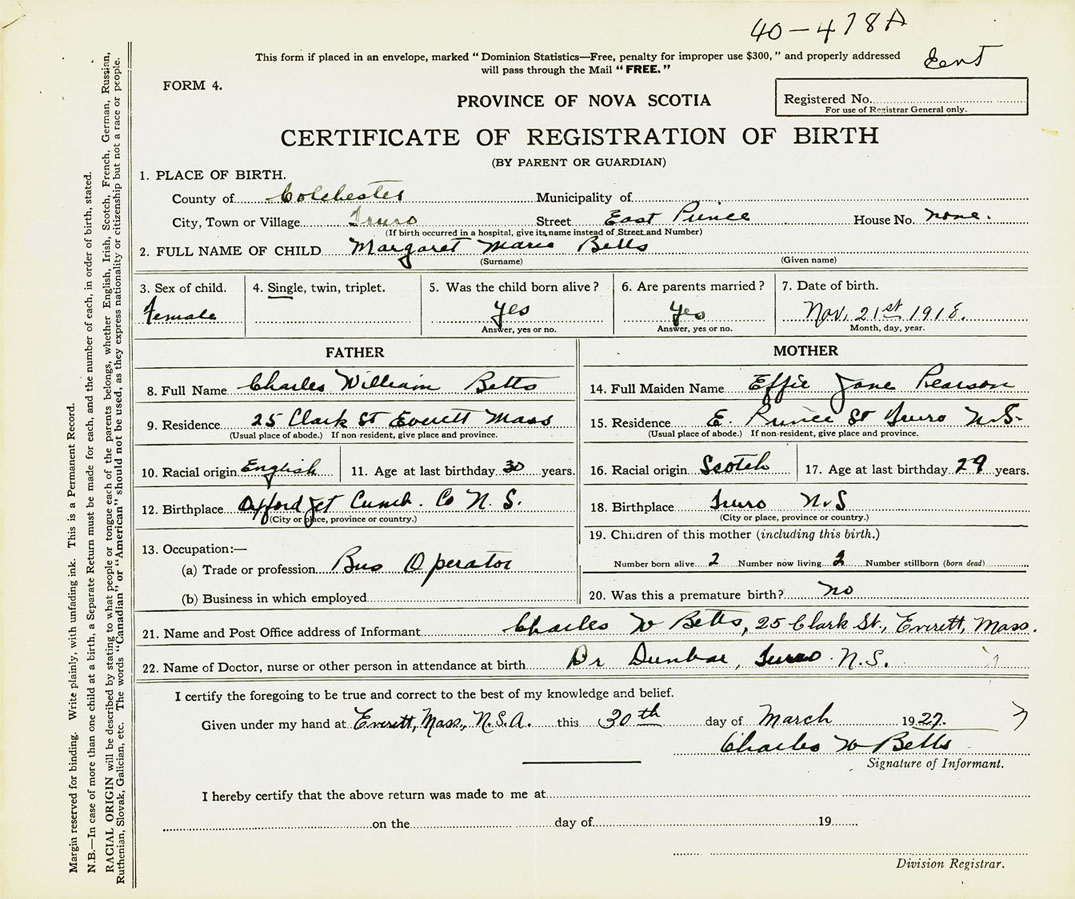 40-478A
This form if placed in an envelope, marked "Dominion Statistics—Free, penalty for improper use $300," and properly addressed
will pass through the Mail "FREE."
Ent
FORM 4.
PROVINCE OF NOVA SCOTIA
Registered No.
For use of Registrar General only.
CERTIFICATE OF REGISTRATION OF BIRTH
(BY PARENT OR GUARDIAN)
1. PLACE OF BIRTH.
County of Colchester Municipality of
City, Town or Village Truro Street East Prince House No. none.
(If birth occurred in a hospital, give its name instead of Street and Number)
2. FULL NAME OF CHILD Margaret Marie Betts
(Surname) (Given name)
3. Sex of child. 4. Single, twin, triplet. 5. Was the child born alive? 6. Are parents married? 7. Date of birth.
Female yes yes Nov. 21st 1918.
Answer, yes or no. Answer, yes or no. Month, day, year.
FATHER MOTHER
8. Full Name Charles William Betts 14. Full Maiden Name Effie Jane Pearson
9. Residence 25 Clark St Everett Mass 15. Residence E. Prince St Truro N.S.
(Usual place of abode.) If non-resident, give place and province. (Usual place of abode.) If non-resident, give place and province.
10. Racial origin English 11. Age at last birthday 30 years. 16. Racial origin Scotch 17. Age at last birthday 29 years.
12. Birthplace Oxford Jct Cumb. Co N.S. 18. Birthplace Truro N.S
(City or place, province or country.) (City or place, province or country.)
13. Occupation:— 19. Children of this mother (including this birth.)
(a) Trade or profession Bus Operator Number born alive 2 Number now living 2 Number stillborn (born dead)
(b) Business in which employed 20. Was this a premature birth? no
21. Name and Post Office address of Informant Charles W Betts, 25 Clark St., Everett, Mass.
22. Name of Doctor, nurse or other person in attendance at birth Dr Dunbar, Truro N.S.
I certify the foregoing to be true and correct to the best of my knowledge and belief.
Given under my hand at Everett, Mass., U.S.A. this 30th day of March 1927.
Charles W Betts
Signature of Informant.
I hereby certify that the above return was made to me at
on the day of 19
Division Registrar.
Margin reserved for binding. Write plainly, with unfading ink. This is a Permanent Record.
N.B.—In case of more than one child at a birth, a Separate Return must be made for each, and the number of each, in order of birth, stated.
RACIAL ORIGIN will be described by stating to what people or tongue each of the parents belongs, whether English, Irish, Scotch, French, German, Russian,
Ruthenian, Slovak, Galician, etc. The words "Canadian" or "American" should not be used, as they express nationality or citizenship but not a race or people.